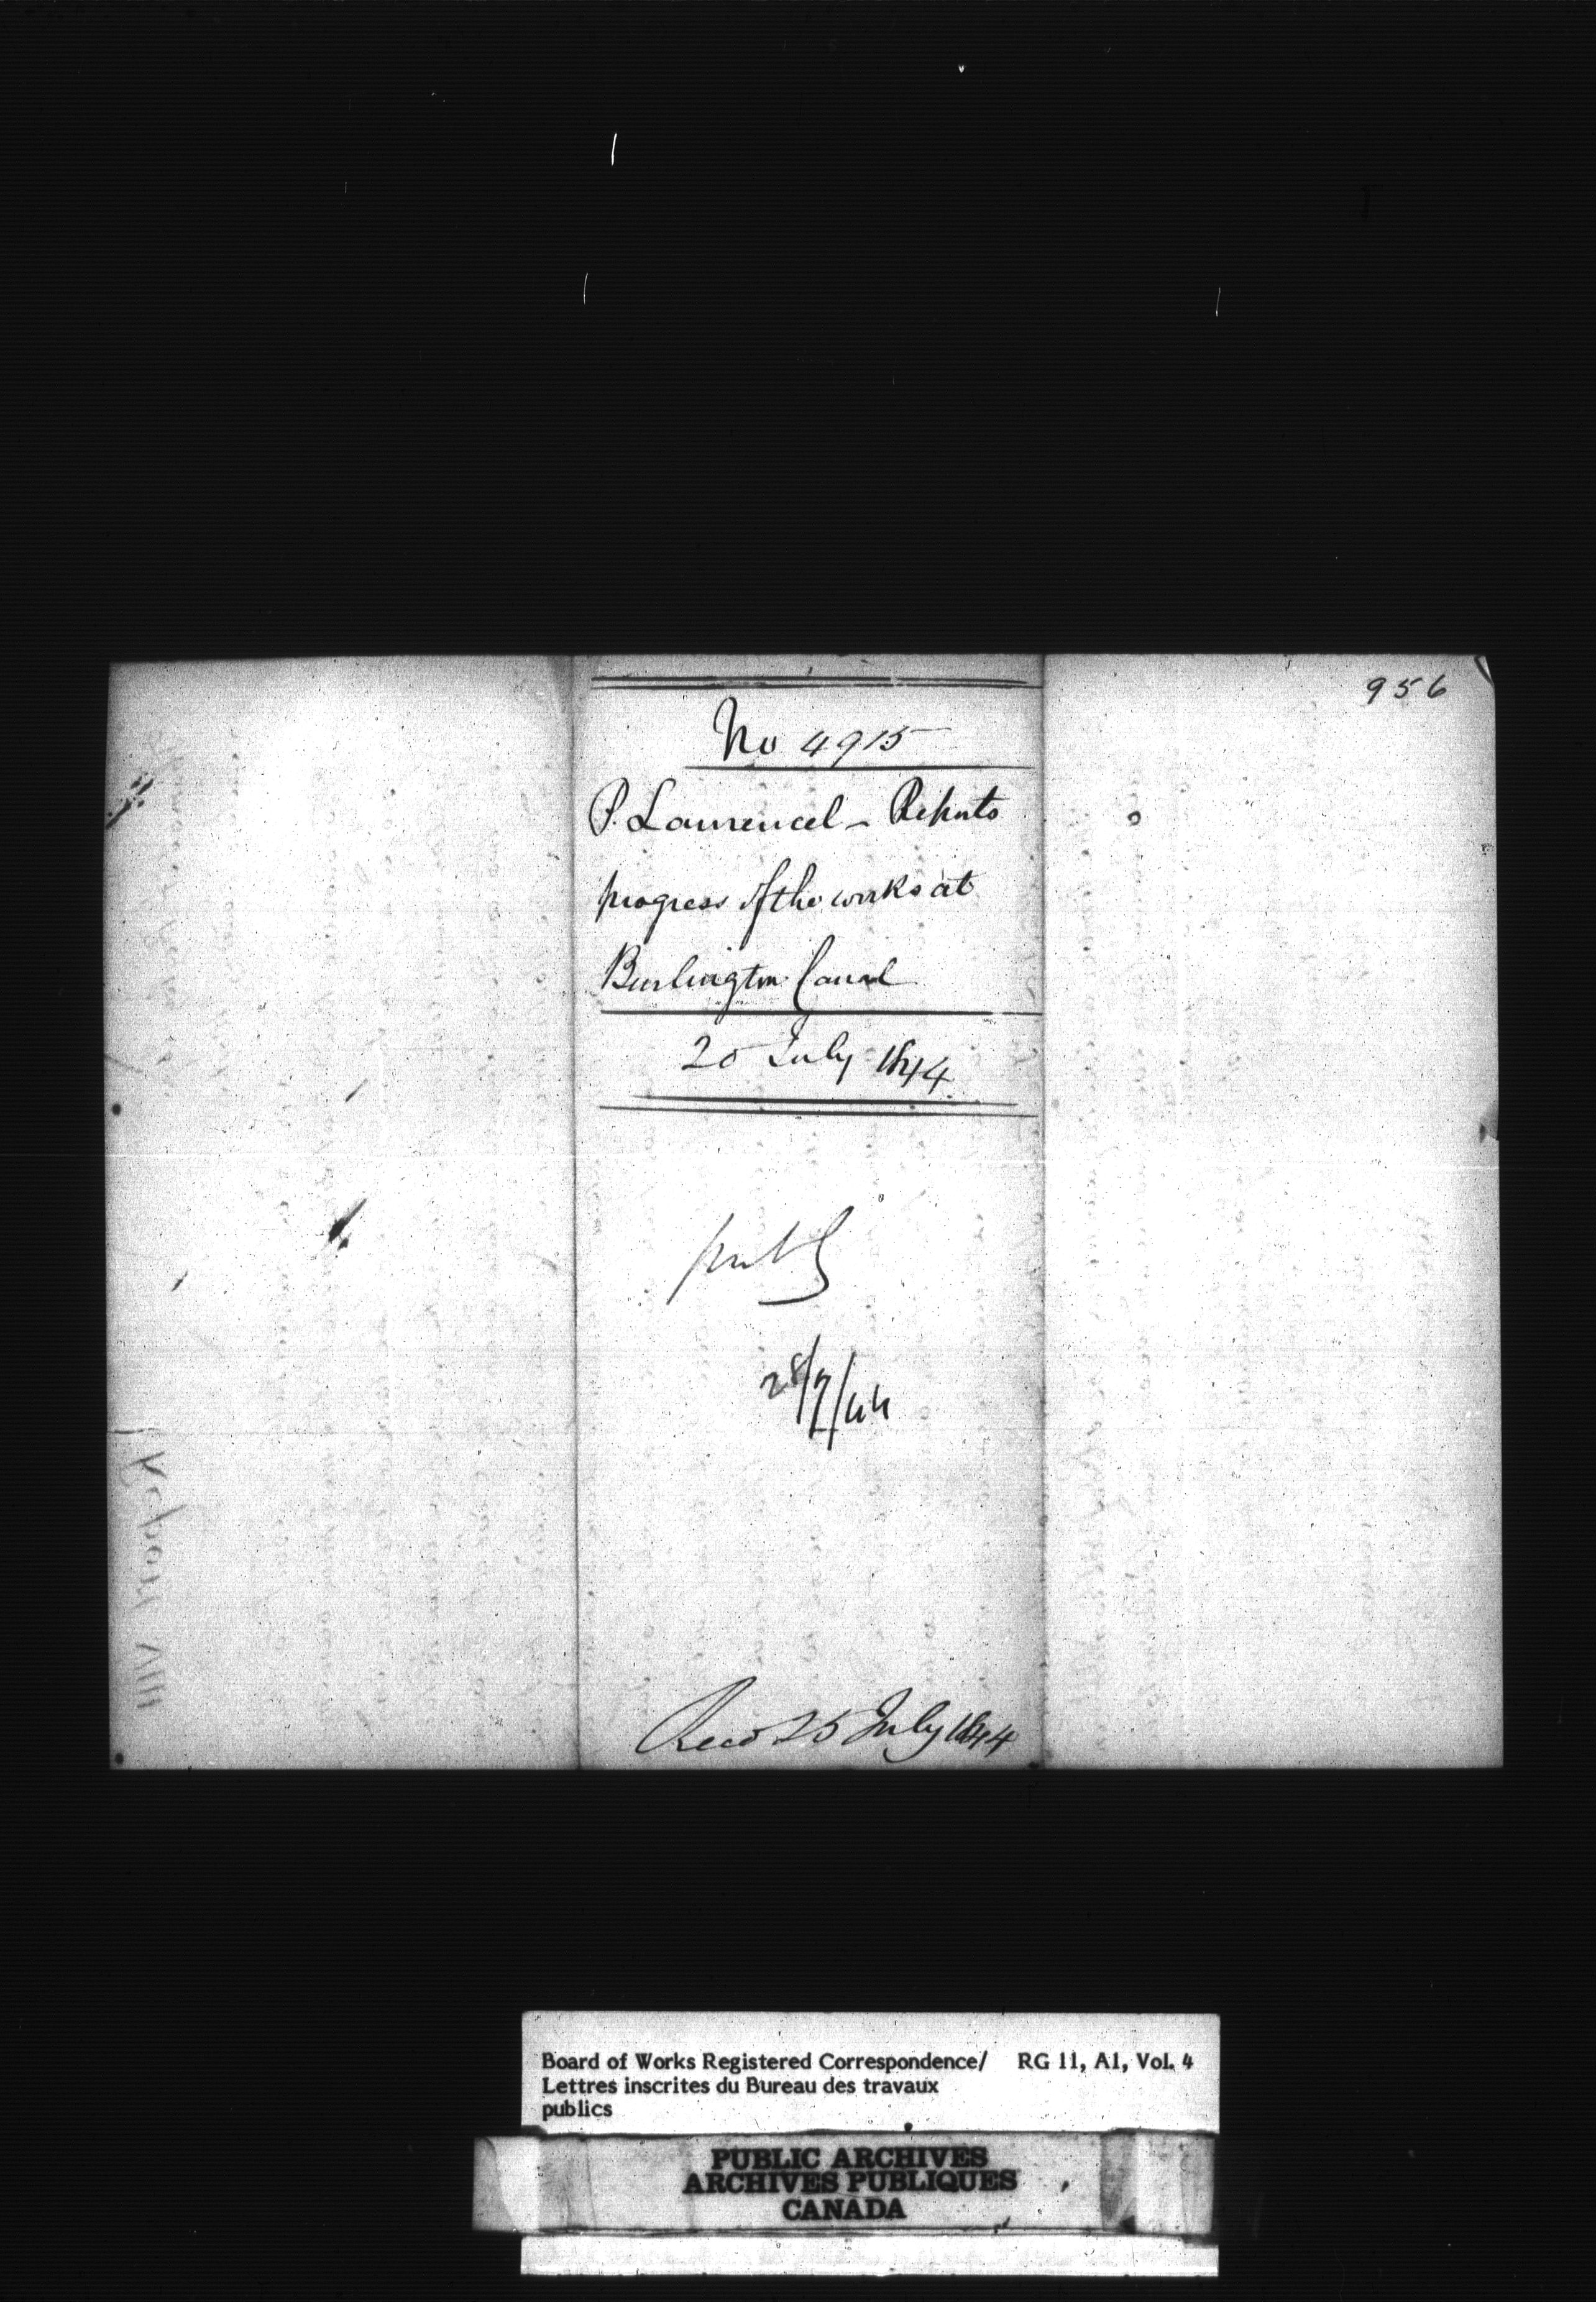 956
No 4915
P. Laurencel - Reports
progress of the works at
Burlington Canal
20 July 1844
28/7/44
Recd 25 July 1844
Board of Works Registered Correspondence/ RG 11, A1, Vol. 4
Lettres inscrites du Bureau des travaux
publics
PUBLIC ARCHIVES
ARCHIVES PUBLIQUES
CANADA